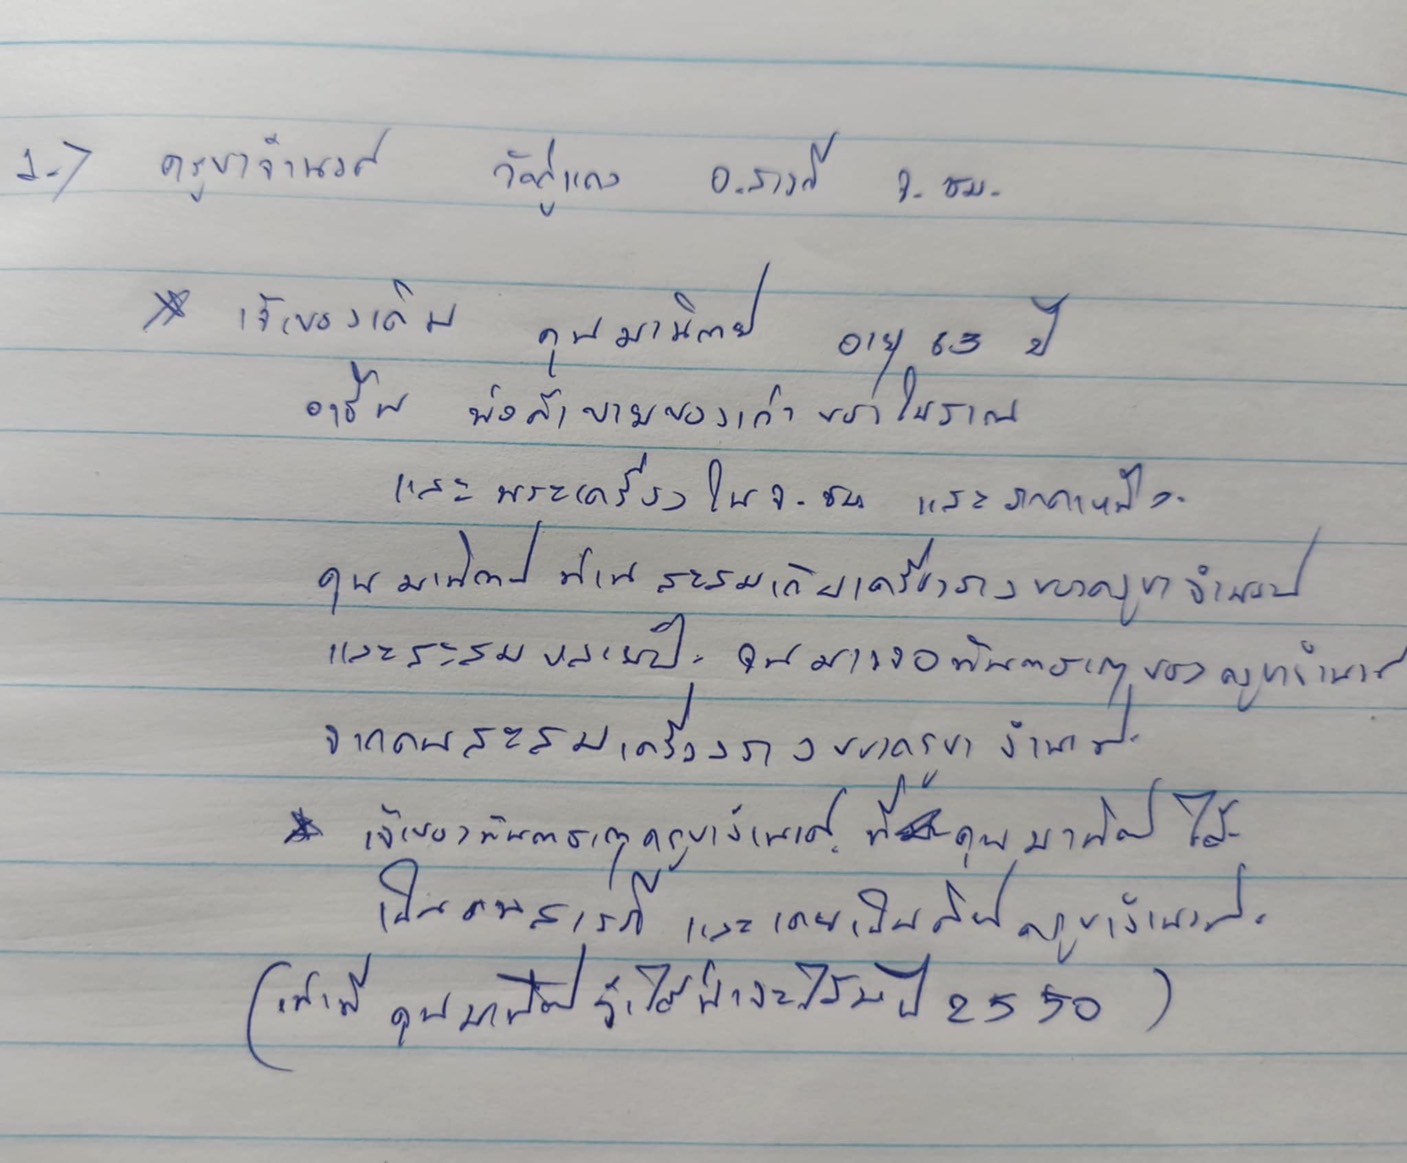 1.-) ครูบาจำนงค์ วัดกู่แดง อ.สารภี จ.ชม.
* เจ้าของเดิม คุณมานิตย์ อายุ 63 ปี
อาชีพ พ่อค้าขายของเก่า ของโบราณ
และ พระเครื่อง ใน จ.ชม และ ภาคเหนือ.
คุณมานิตย์ ท่าน สะสมเก็บเครื่องราง ของครูบาจำนงค์
และสะสม หลายปี. จนมาเจอ ของครูบาจำนงค์
จากคนสะสมเครื่องราง ของครูบา จำนงค์.
* เจ้าของ ครูบาจำนงค์. ที่ คุณมานิตย์ ได้.
เป็นคนสารภี และเคยเป็นศิษย์ ครูบาจำนงค์.
(เท่าที่ คุณมานิตย์ จำได้น่าจะได้มาปี 2550)